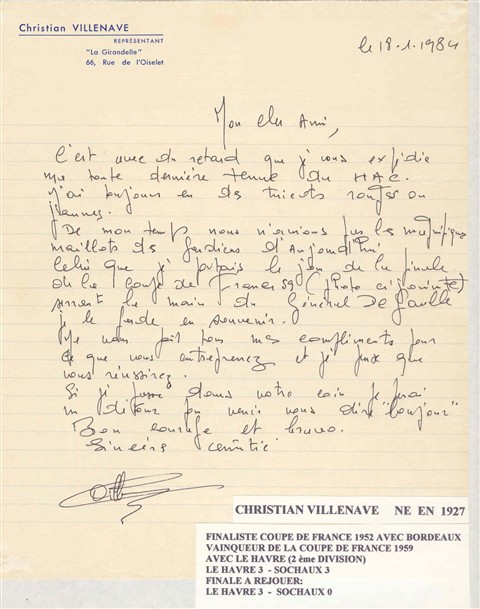 Christian VILLENAVE
REPRÉSENTANT
"La Girondelle"
66, Rue de l'Oiselet
le 18.1.1984
Mon cher Ami,
C'est avec du retard que je vous expédie
ma toute dernière tenue du HAC.
J'ai toujours eu des tricots rouges ou
jaunes.
De mon temps nous n'avions pas les magnifiques
maillots des gardiens d'Aujourd'hui
Celui que je portais le jour de la finale
de la Coupe de France 59 (photo ci jointe)
serrant la main du Général De Gaulle
je le garde en souvenir.
Je vous fait tous mes compliments pour
ce que vous entreprenez et je
que
vous réussirez.
Si je passe dans votre coin je ferai
un détour pour venir vous dire "bonjour"
Bon courage et bravo.
Sincère amitié
CHRISTIAN VILLENAVE NE EN 1927
FINALISTE COUPE DE FRANCE 1952 AVEC BORDEAUX
VAINQUEUR DE LA COUPE DE FRANCE 1959
AVEC LE HAVRE (2 ème DIVISION)
LE HAVRE 3 - SOCHAUX 3
FINALE A REJOUER:
LE HAVRE 3 - SOCHAUX 0